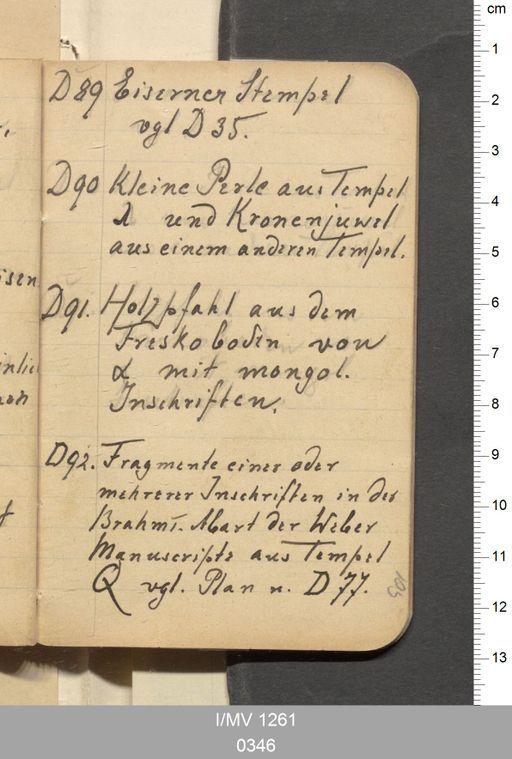 D89 Eiserner Stempel
vgl D 35.
D90 Kleine Perle aus Tempel
λ und Kronenjuwel
aus einem anderen Tempel.
D91. Holzpfahl aus dem
Freskoboden von
α mit mongol.
Inschriften.
D92. Fragmente einer oder
mehrerer Inschriften in der
Brahmī-Abart der Weber
Manuscripte aus Tempel
Q vgl. Plan u. D 77.
103
cm
1
2
3
4
5
6
7
8
9
10
11
12
13
I/MV 1261
0346